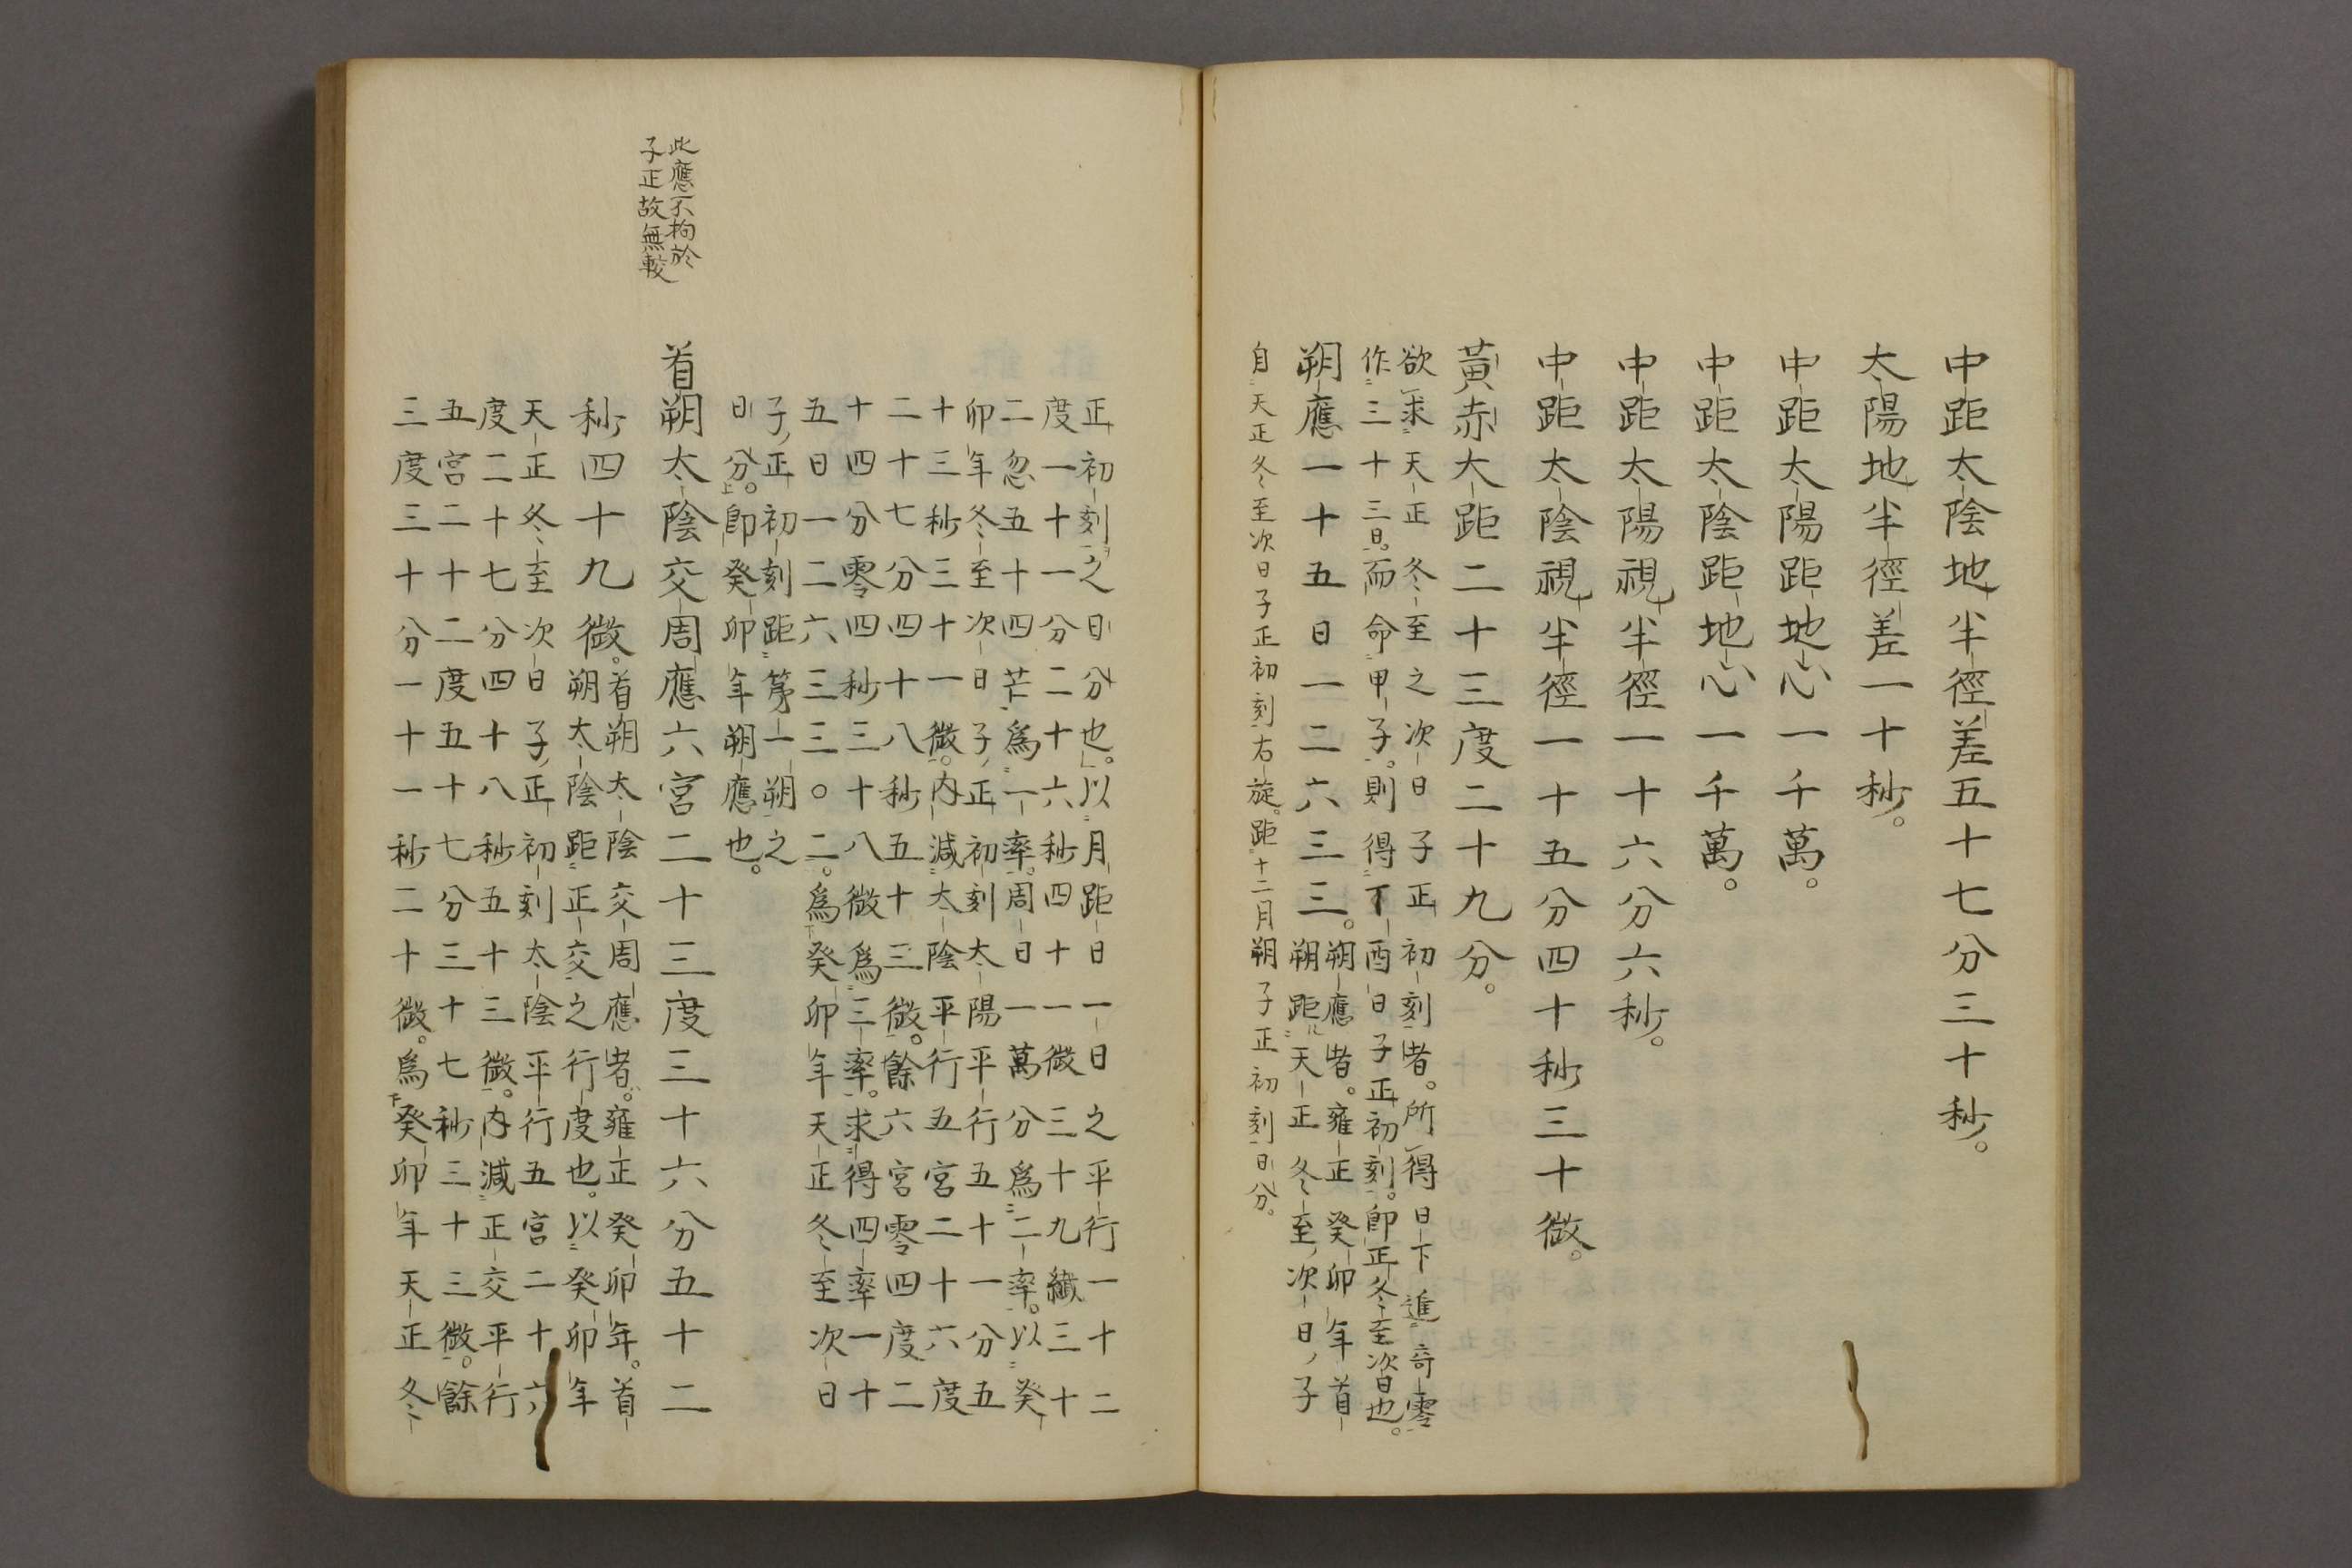 中距太陰地半徑差五十七分三十秒。
太陽地半徑差一十秒。
中距太陽距地心一千萬。
中距太陰距地心一千萬。
中距太陽視半徑一十六分六秒。
中距太陰視半徑一十五分四十秒三十微。
黃赤大距二十三度二十九分。
欲求天正冬至之次日子正初刻者。所得日下進奇零
作三十三日。而命甲子。則得丁酉日子正初刻。即正冬至次日也。
朔應一十五日一二六三三。
朔應者。雍正癸卯年首
朔距天正冬至次日子
自天正冬至次日子正初刻右旋。距十二月朔子正初刻日分。
正初刻之日分也。以月距日一日之平行一十二
度一十一分二十六秒四十一微三十九纖三十
二忽五十四芒爲一率。周日一萬分爲二率。以癸
卯年冬至次日子正初刻太陽平行五十一分五
十三秒三十一微。內減太陰平行五宮二十六度
二十七分四十八秒五十三微。餘六宮零四度二
十四分零四秒三十八微爲三率。求得四率一十
五日一二六三三〇二。爲癸卯年天正冬至次日
子正初刻距第一朔之
日分。即癸卯年朔應也。
此應不拘於
子正故無較
首朔太陰交周應六宮二十三度三十六分五十二
秒四十九微。
首朔太陰交周應者。雍正癸卯年。首
朔太陰距正交之行度也。以癸卯年
天正冬至次日子正初刻太陰平行五宮二十六
度二十七分四十八秒五十三微。內減正交平行
五宮二十二度五十七分三十七秒三十三微。餘
三度三十分一十一秒二十微。爲癸卯年天正冬